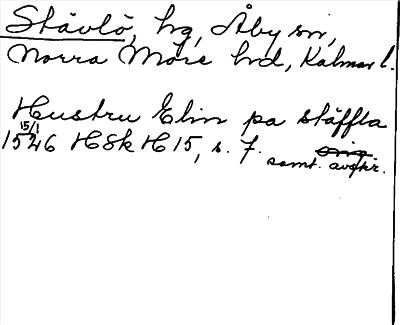 Stävlö, hg, Åby sn,
Norra Möre hd, Kalmar l.
Hustru Elin pa stäffla
15/1
1546 HSkH 15, s. 7. orig
samt. avskr.